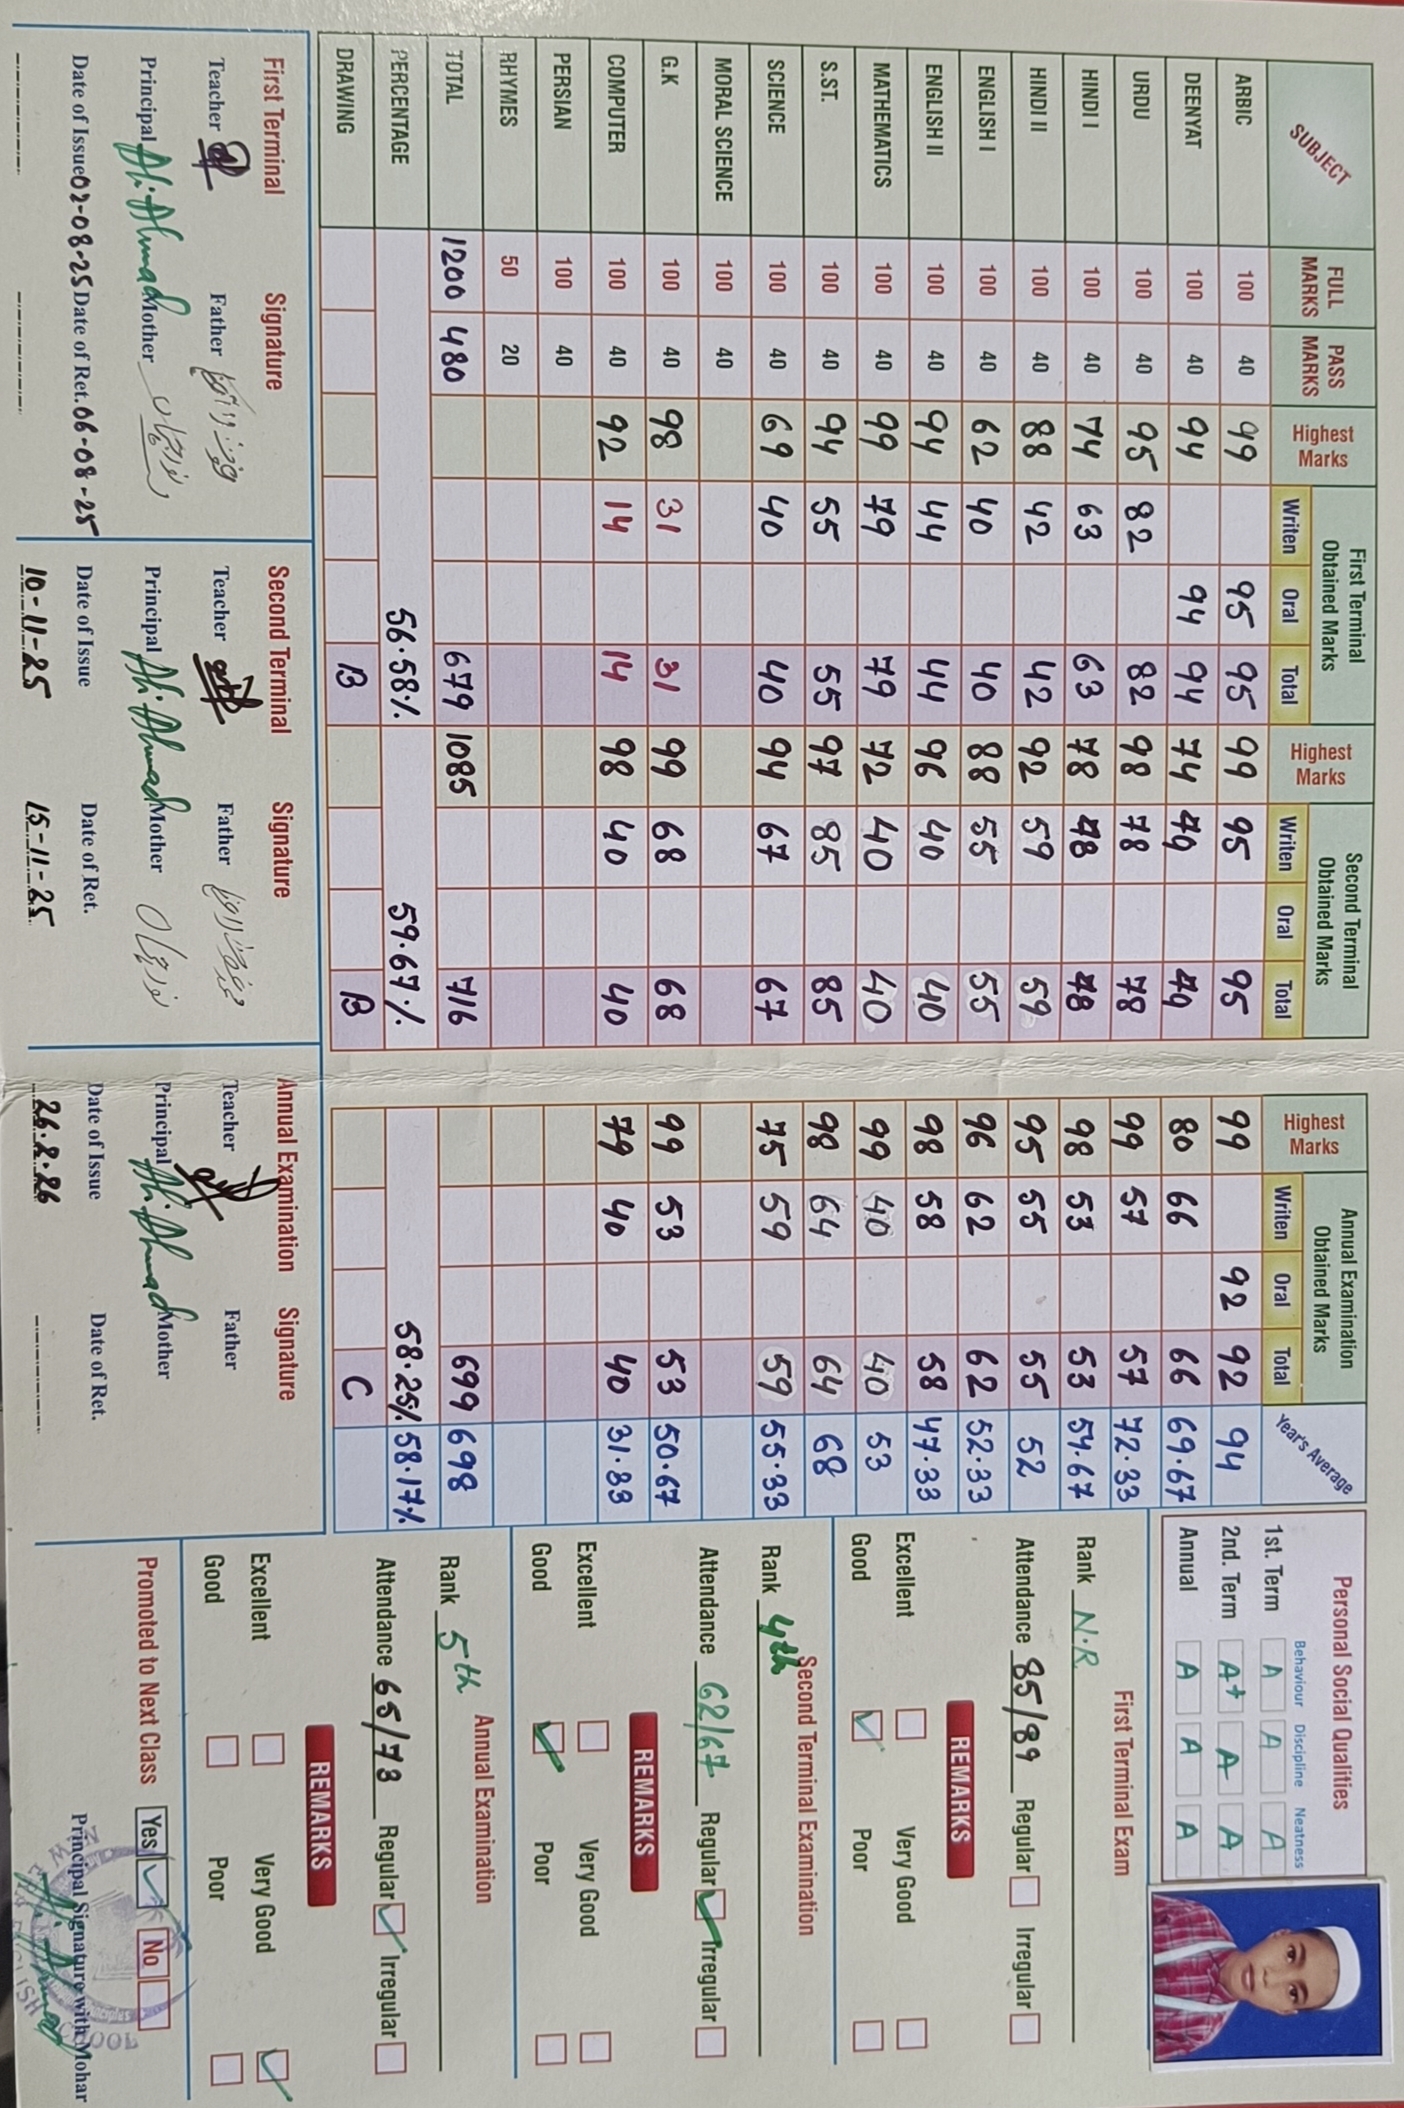 SUBJECT FULL MARKS PASS MARKS Highest Marks First Terminal Obtained Marks Writen Oral Total Highest Marks Second Terminal Obtained Marks Writen Oral Total Highest Marks Annual Examination Obtained Marks Writen Oral Total Year's Average
ARBIC 100 40 99 95 95 99 95 95 99 92 92 94
DEENYAT 100 40 94 94 94 74 49 49 80 66 66 69.67
URDU 100 40 95 82 82 98 78 78 99 57 57 72.33
HINDI I 100 40 74 63 63 78 48 48 98 53 53 54.67
HINDI II 100 40 88 42 42 92 59 59 95 55 55 52
ENGLISH I 100 40 62 40 40 88 55 55 96 62 62 52.33
ENGLISH II 100 40 94 44 44 96 40 40 98 58 58 47.33
MATHEMATICS 100 40 99 79 79 72 40 40 99 40 40 53
S.ST. 100 40 94 55 55 97 85 85 98 64 64 68
SCIENCE 100 40 69 40 40 94 67 67 75 59 59 55.33
MORAL SCIENCE 100 40
G.K 100 40 98 31 31 99 68 68 99 53 53 50.67
COMPUTER 100 40 92 14 14 98 40 40 79 40 40 31.33
PERSIAN 100 40
RHYMES 50 20
TOTAL 1200 480 679 1085 716 699 698
PERCENTAGE 56.58% 59.67% 58.25% 58.17%
DRAWING B B C
First Terminal Signature
Teacher Father
Principal Ali Ahmad Mother
Date of Issue 02-08-25 Date of Ret. 06-08-25
Second Terminal Signature
Teacher Father
Principal Ali Ahmad Mother
Date of Issue Date of Ret.
10-11-25 15-11-25
Annual Examination Signature
Teacher Father
Principal Ali Ahmad Mother
Date of Issue Date of Ret.
26.2.26
Personal Social Qualities
Behaviour Discipline Neatness
1st. Term A A A
2nd. Term A+ A A
Annual A A A
First Terminal Exam
Rank N.R
Attendance 85/89 Regular Irregular
REMARKS
Excellent Very Good
Good Poor
Second Terminal Examination
Rank 4th
Attendance 62/67 Regular Irregular
REMARKS
Excellent Very Good
Good Poor
Annual Examination
Rank 5th
Attendance 65/73 Regular Irregular
REMARKS
Excellent Very Good
Good Poor
Promoted to Next Class Yes No
Principal Signature with Mohar
Ali Ahmad